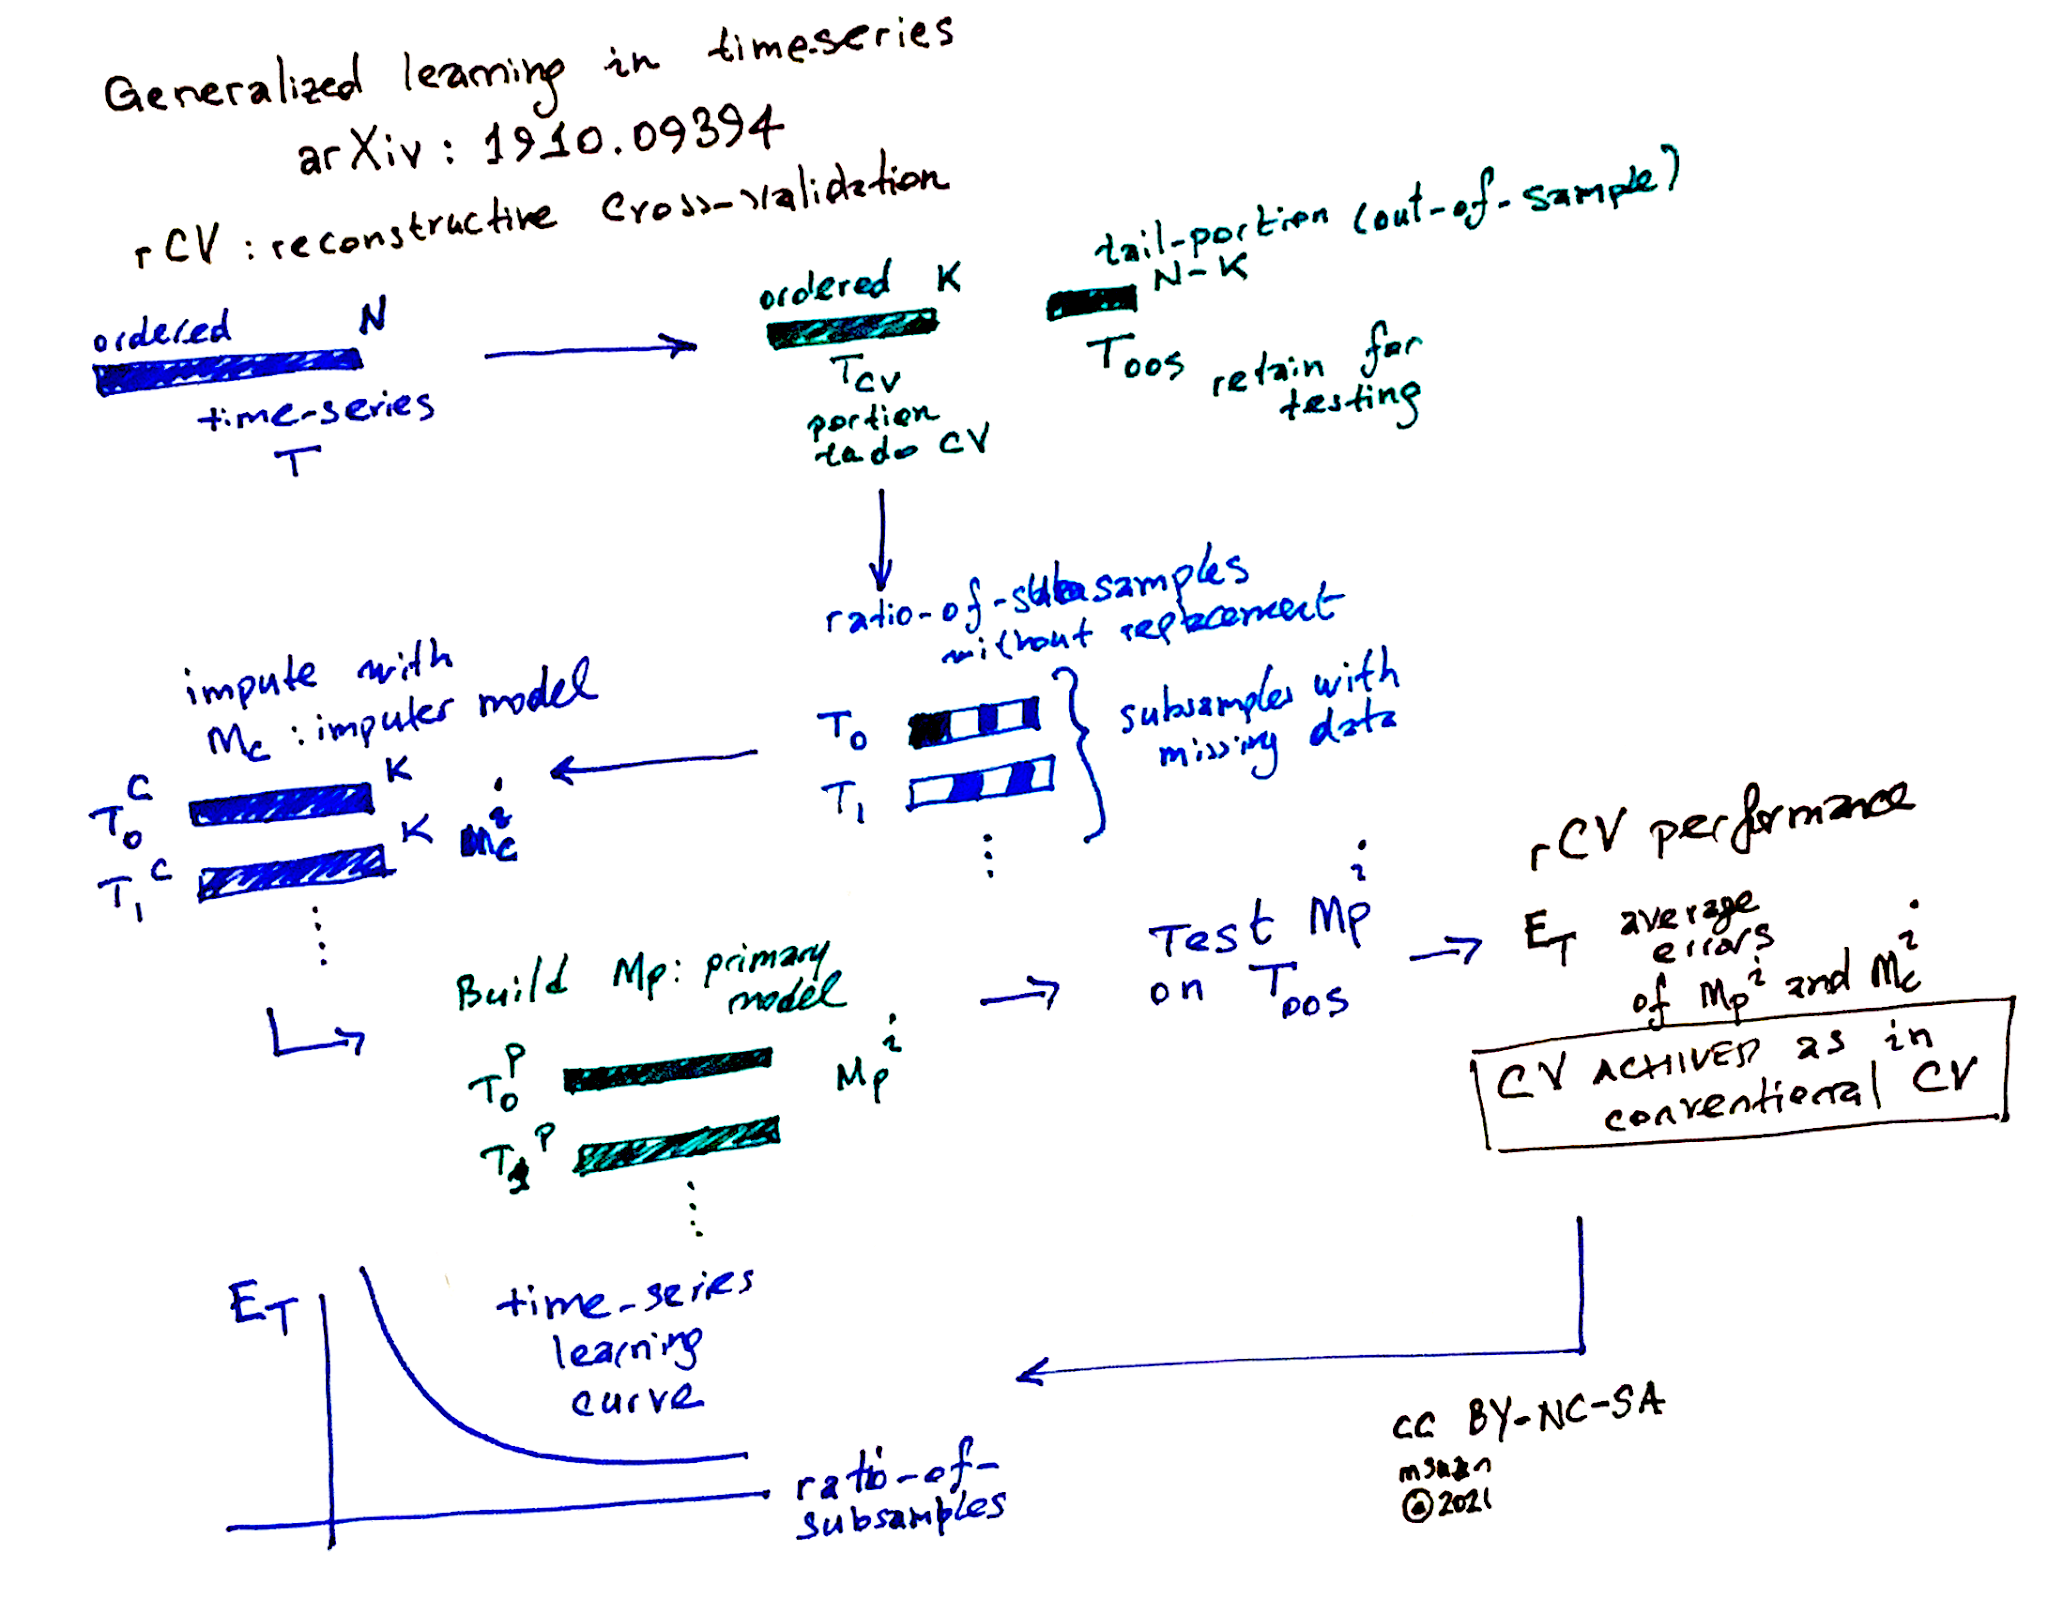 Generalized learning in timeseries
arXiv: 1910.09394
rCV: reconstructive Cross-validation
ordered N
time-series
T
ordered K
TCV
portion
to do CV
tail-portion (out-of-sample)
N-K
TOOS retain for
testing
ratio-of-subsamples
without replacement
T0
T1
subsamples with
missing data
impute with
Mc: imputer model
T0^C K
T1^C K Mc^i
Build Mp: primary
model
T0^P Mp^i
T1^P
Test Mp^i
on TOOS
rCV performance
ET average
errors
of Mp^i and Mc^i
CV ACHIVED as in
conventional CV
ET
time-series
learning
curve
ratio-of-
subsamples
CC BY-NC-SA
msuzen
©2021